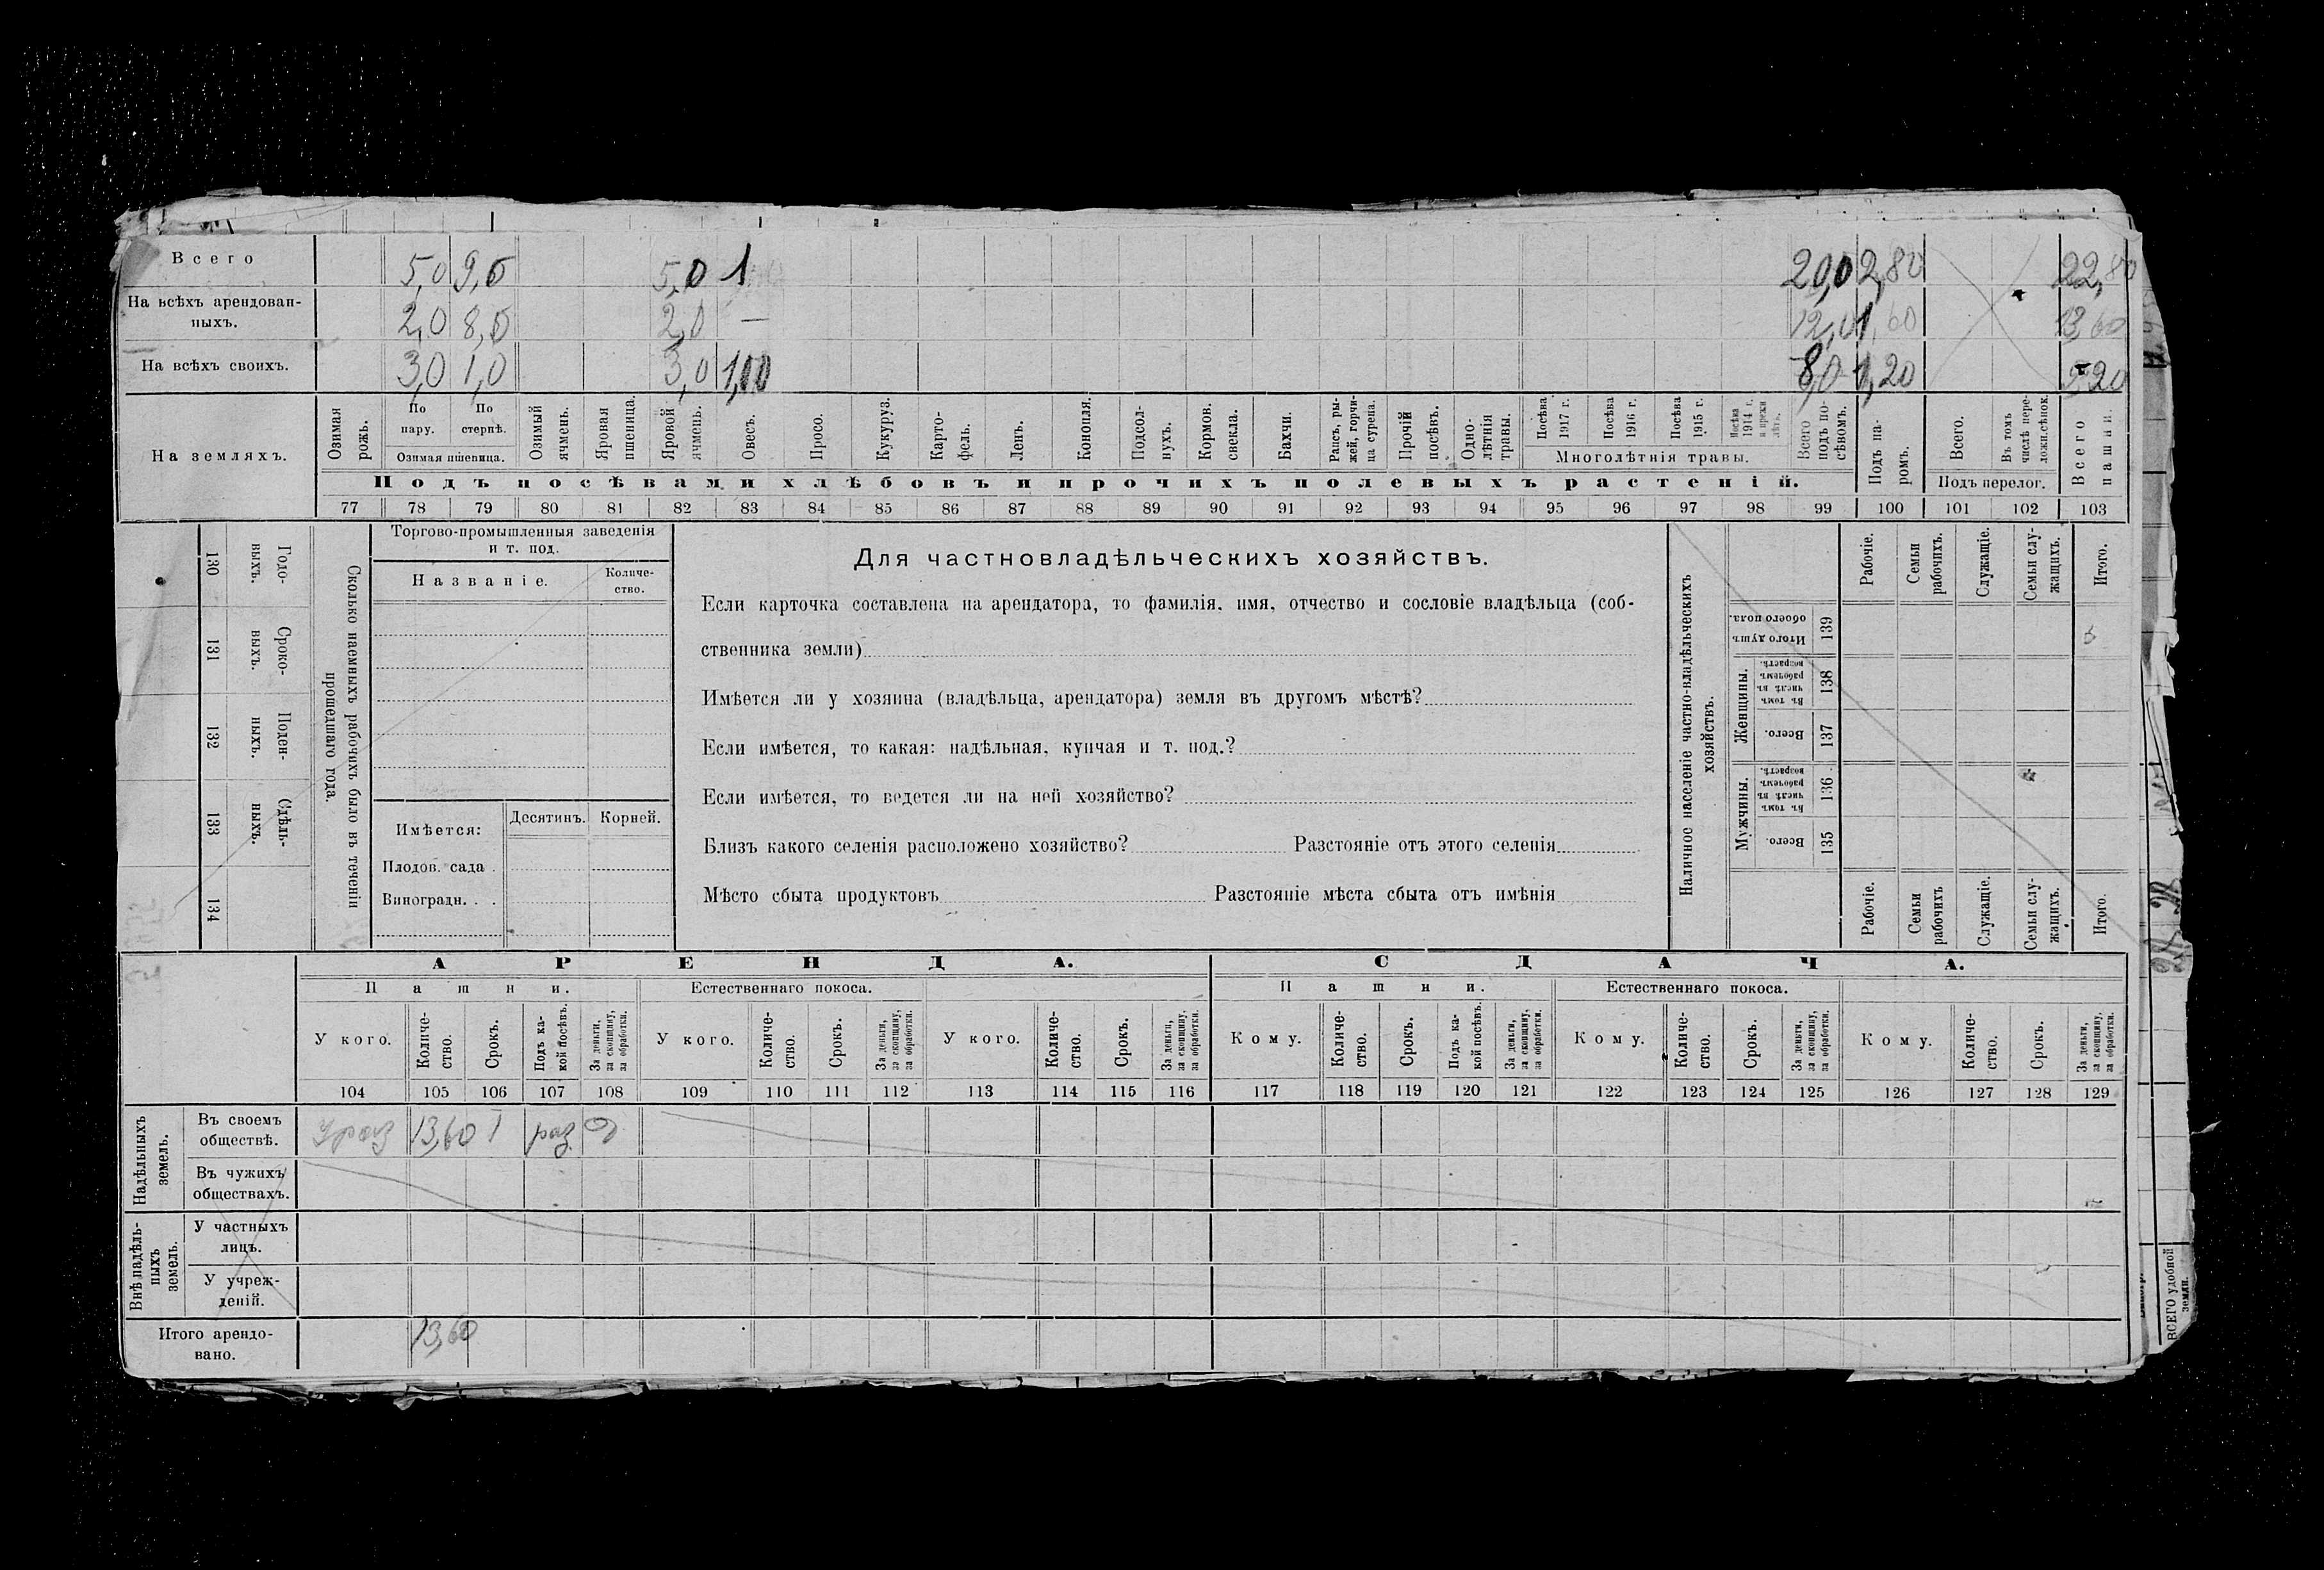 Всего 5,0 9,0 5,0 1 20,0 2,80 22,80
На всѣхъ арендован-
ныхъ. 2,0 8,0 2,0 — 12,0 1,60 13,60
На всѣхъ своихъ. 3,0 1,0 3,0 1,00 8,0 1,20
На земляхъ.
Озимая рожь.
По пару.
По стернѣ.
Озимая пшеница.
Озимый ячмень.
Яровая пшеница.
Яровой ячмень.
Овесъ.
Просо.
Кукуруз.
Карто-
фель.
Ленъ.
Конопля.
Подсол-
нухъ.
Кормов.
свекла.
Бахчи.
Рапсъ, ры-
жей, горчи-
ца сурепа.
Прочій
посѣвъ.
Одно-
лѣтнія
травы.
Посѣва
1917 г.
Посѣва
1916 г.
Посѣва
1915 г.
Посѣва
1914 г.
Многолѣтнія травы.
Всего
подъ по-
сѣвомъ.
Подъ па-
ромъ.
Всего.
Въ томъ
числѣ пере-
ложн.сѣнок.
Подъ перелог.
Всего
пашни.
Подъ посѣвами хлѣбовъ и прочихъ полевыхъ растеній.
77 78 79 80 81 82 83 84 85 86 87 88 89 90 91 92 93 94 95 96 97 98 99 100 101 102 103
130 131 132 133 134
Годо-
выхъ.
Сроко-
выхъ.
Поден-
ныхъ.
Сдѣль-
ныхъ.
Сколько наемныхъ рабочихъ было въ теченіи
прошедшаго года.
Торгово-промышленныя заведенія
и т. под.
Названіе.
Количе-
ство.
Имѣется:
Десятинъ.
Корней.
Плодов. сада .
Виноградн. . .
Для частновладѣльческихъ хозяйствъ.
Если карточка составлена на арендатора, то фамилія, имя, отчество и сословіе владѣльца (соб-
ственника земли)
Имѣется ли у хозяина (владѣльца, арендатора) земля въ другомъ мѣстѣ?
Если имѣется, то какая: надѣльная, купчая и т. под.?
Если имѣется, то ведется ли на ней хозяйство?
Близъ какого селенія расположено хозяйство? Разстояніе отъ этого селенія
Мѣсто сбыта продуктовъ Разстояніе мѣста сбыта отъ имѣнія
Наличное населеніе частно-владѣльческихъ
хозяйствъ.
Рабочіе.
Семьи
рабочихъ.
Служащіе.
Семьи слу-
жащихъ.
Итого.
Итого душъ
обоего пола.
139
Женщины.
Въ томъ
числѣ въ
рабочемъ
возрастѣ.
138
Всего.
137
Мужчины.
Въ томъ
числѣ въ
рабочемъ
возрастѣ.
136
Всего.
135
Рабочіе.
Семьи
рабочихъ
Служащіе.
Семьи слу-
жащихъ.
Итого.
АРЕНДА. СДАЧА.
Пашни. Естественнаго покоса. Пашни. Естественнаго покоса.
У кого.
Количе-
ство.
Срокъ.
Подъ ка-
кой посѣвъ.
За деньги,
за скопщину,
за обработки.
У кого.
Количе-
ство.
Срокъ.
За деньги,
за скопщину,
за обработки.
У кого.
Количе-
ство.
Срокъ.
За деньги,
за скопщину,
за обработки.
Кому.
Количе-
ство.
Срокъ.
Подъ ка-
кой посѣвъ.
За деньги,
за скопщину,
за обработки.
Кому.
Количе-
ство.
Срокъ.
За деньги,
за скопщину,
за обработки.
Кому.
Количе-
ство.
Срокъ.
За деньги,
за скопщину,
за обработки.
104 105 106 107 108 109 110 111 112 113 114 115 116 117 118 119 120 121 122 123 124 125 126 127 128 129
Надѣльныхъ
земель.
Въ своемъ
обществѣ. 13,60
Въ чужихъ
обществахъ.
Внѣ надѣль-
ныхъ
земель.
У частныхъ
лицъ.
У учреж-
деній.
Итого арендо-
вано. 13,60
ВСЕГО удобной
земли.